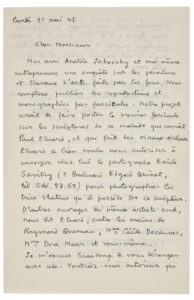 Lundi 21 mai 45
Cher Monsieur
Mon ami Anatole Jakovsky et moi-même
entreprenons une enquête sur les peintures
et travaux d'art faits par les fous. Nous
comptons publier les reproductions et
monographies par fascicules. Notre projet
serait de faire porter le premier fascicule
sur les sculptures de ce malade que connaît
Paul Eluard, et que fait
Eluard a bien voulu nous autoriser à
envoyer chez lui le photographe Emile
Savitry (1 Boulevard Edgard Quinet,
tél. Odé. 97.60) pour photographier les
trois statues qu'il possède de ce sculpteur.
D'autres ouvrages du même artiste sont,
nous dit Eluard, entre les mains de
Raymond Queneau, Mme Cécile Decaunes,
Mme Dora Maar et vous-même.
Je m'excuse beaucoup de vous déranger
avec cela. Voudriez-vous autoriser que